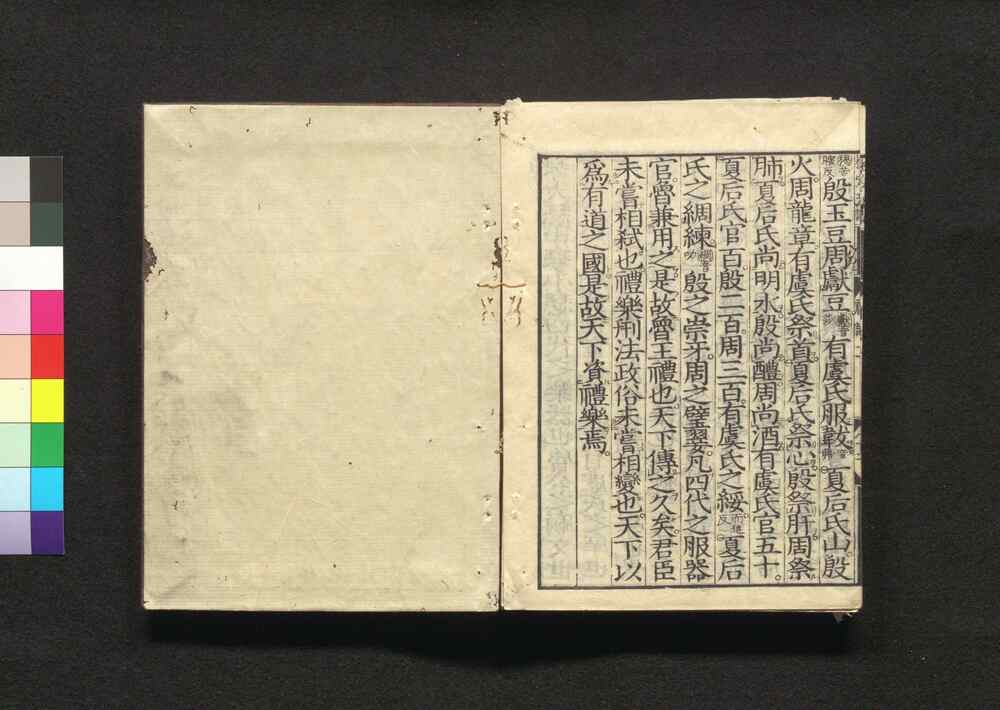 殷玉豆周獻豆有虞氏服韍夏后氏山殷
火周龍章有虞氏祭首夏后氏祭心殷祭肝周祭
肺夏后氏尚明水殷尚醴周尚酒有虞氏官五十
夏后氏官百殷二百周三百有虞氏之綏夏后
氏之綢練殷之崇牙周之璧翣凡四代之服器
官魯兼用之是故魯王禮也天下傳之久矣君臣
未嘗相弑也禮樂刑法政俗未嘗相變也天下以
爲有道之國是故天下資禮樂焉